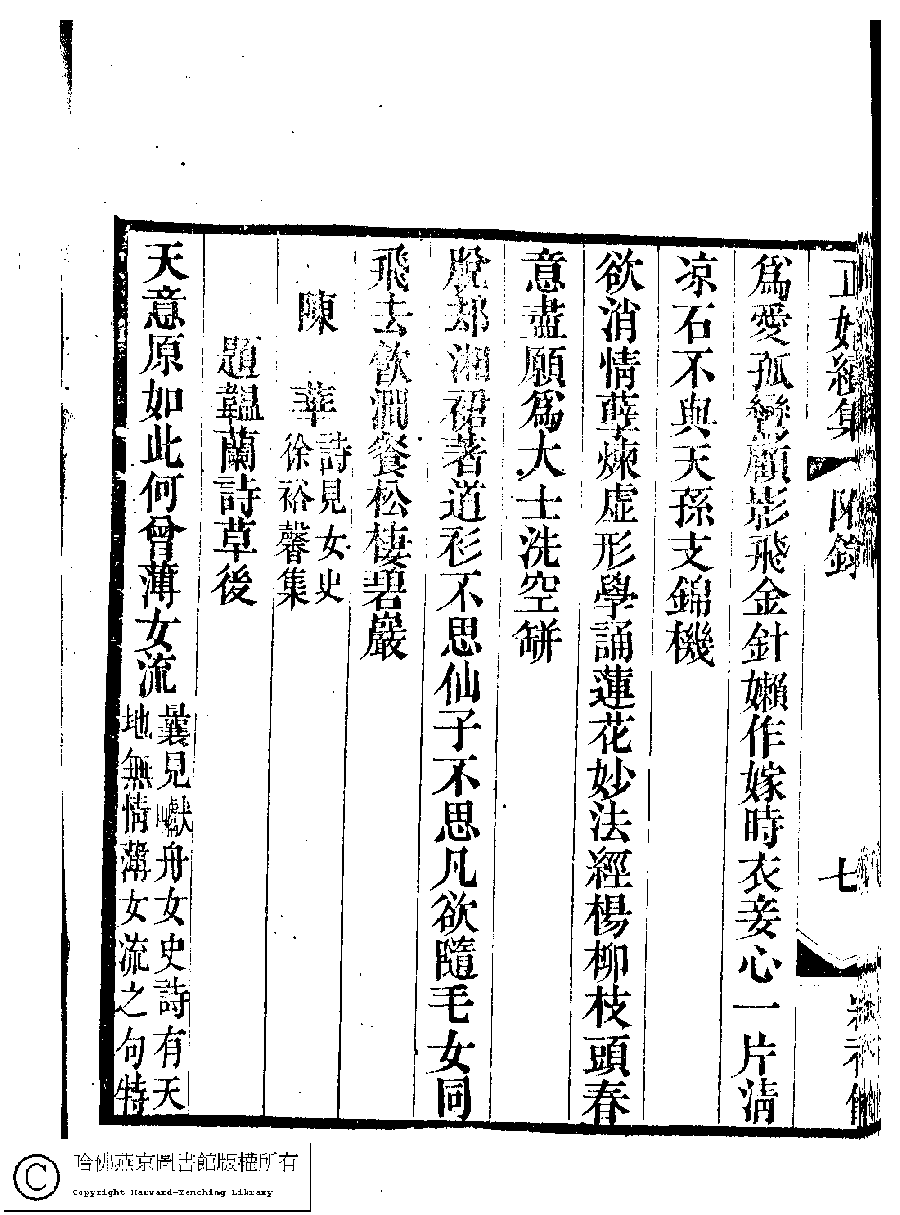 正始續集 附錄 七
爲愛孤鸞顧影飛金針嬾作嫁時衣妾心一片淸
凉石不與天孫支錦機
欲消情孽煉虛形學誦蓮花妙法經楊柳枝頭春
意盡願爲大士洗空缾
脫却湘裙著道衫不思仙子不思凡欲隨毛女同
飛去飮澗餐松棲碧巖
陳 華 詩見女史
徐裕馨集
題韞蘭詩草後
天意原如此何曾薄女流 曩見巘舟女史詩有天
地無情薄女流之句特
哈佛燕京圖書館版權所有
Copyright Harvard-Yenching Library